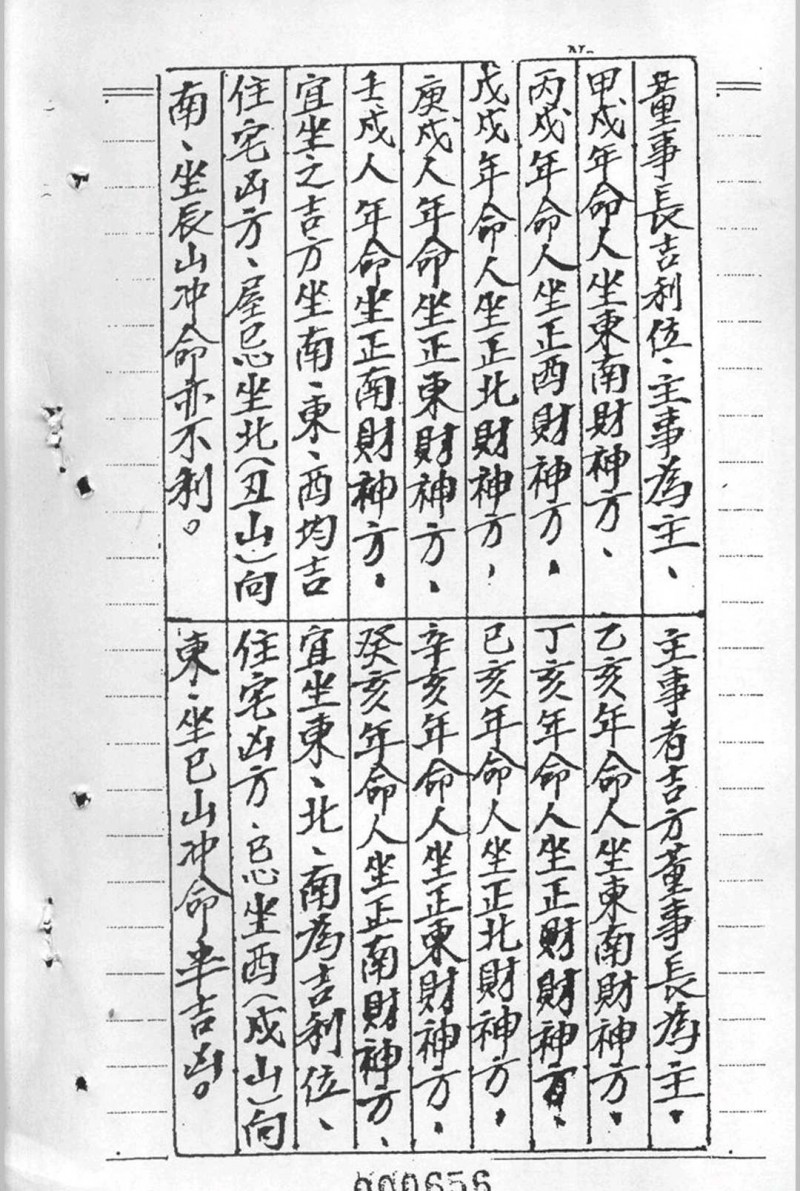 董事長吉利位、主事為主、
甲戌年命人坐東南財神方、
丙戌年命人坐正西財神方、
戊戌年命人坐正北財神方，
庚戌人年命坐正東財神方、
壬戌人年命坐正南財神方。
宜坐之吉方坐南、東、西均吉
住宅凶方、屋忌坐北（丑山）向
南、坐辰山冲命亦不利。
主事者吉方董事長為主。
乙亥年命人坐東南財神方。
丁亥年命人坐正財財神方、
己亥年命人坐正北財神方，
辛亥年命人坐正東財神方、
癸亥年命人坐正南財神方、
宜坐東、北、南為吉利位、
住宅凶方、忌坐酉（戌山）向
東、坐巳山冲命半吉凶。
000656